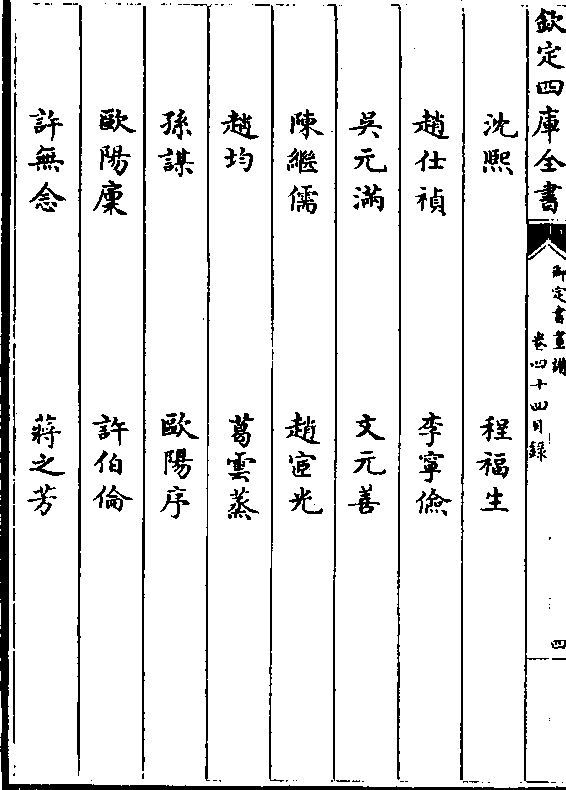 欽定四庫全書
御定書畫譜
卷四十四目錄
四
沈熙
程福生
趙仕禎
李寧儉
吳元滿
文元善
陳繼儒
趙宧光
趙均
葛雲蒸
孫謀
歐陽序
歐陽廩
許伯倫
許無念
蔣之芳